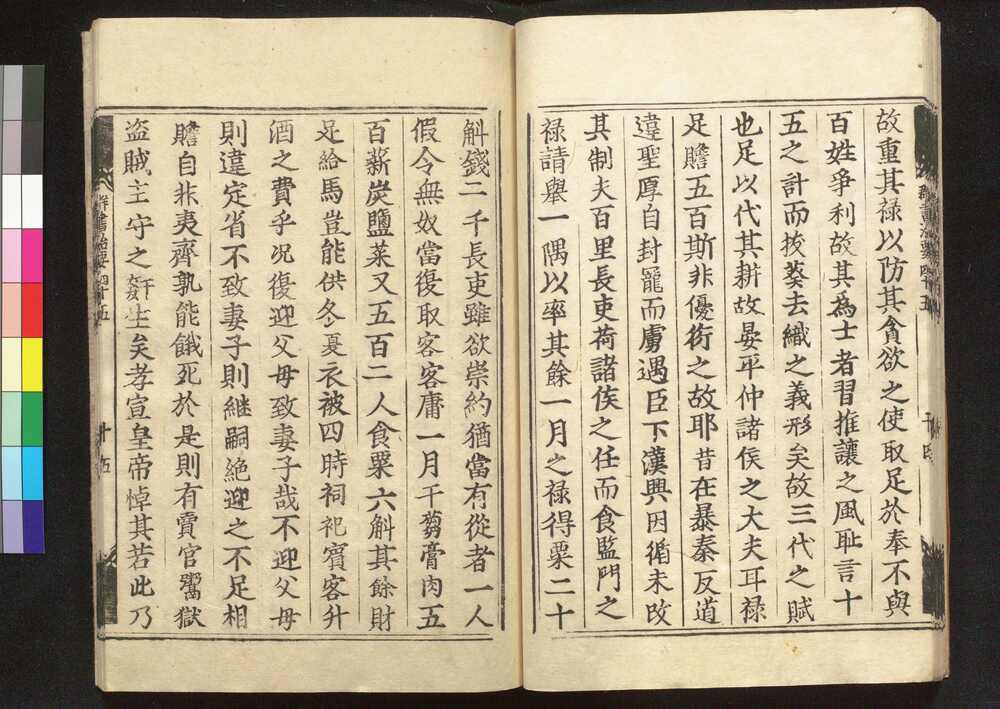 故重其祿以防其貪欲之使取足於奉不與
百姓爭利故其爲士者習推讓之風耻言十
五之計而拔葵去織之義形矣故三代之賦
也足以代其耕故晏平仲諸侯之大夫耳祿
足贍五百斯非優衍之故耶昔在暴秦反道
違聖厚自封寵而虜遇臣下漢興因循未改
其制夫百里長吏荷諸侯之任而食監門之
祿請舉一隅以率其餘一月之祿得粟二十
斛錢二千長吏雖欲崇約猶當有從者一人
假令無奴當復取客客庸一月千芻膏肉五
百薪炭鹽菜又五百二人食粟六斛其餘財
足給馬豈能供冬夏衣被四時祠祀賓客斗
酒之費乎況復迎父母致妻子哉不迎父母
則違定省不致妻子則繼嗣絶迎之不足相
贍自非夷齊孰能餓死於是則有賣官鬻獄
盜賊主守之姧生矣孝宣皇帝悼其若此乃
群書治要四十五 十五